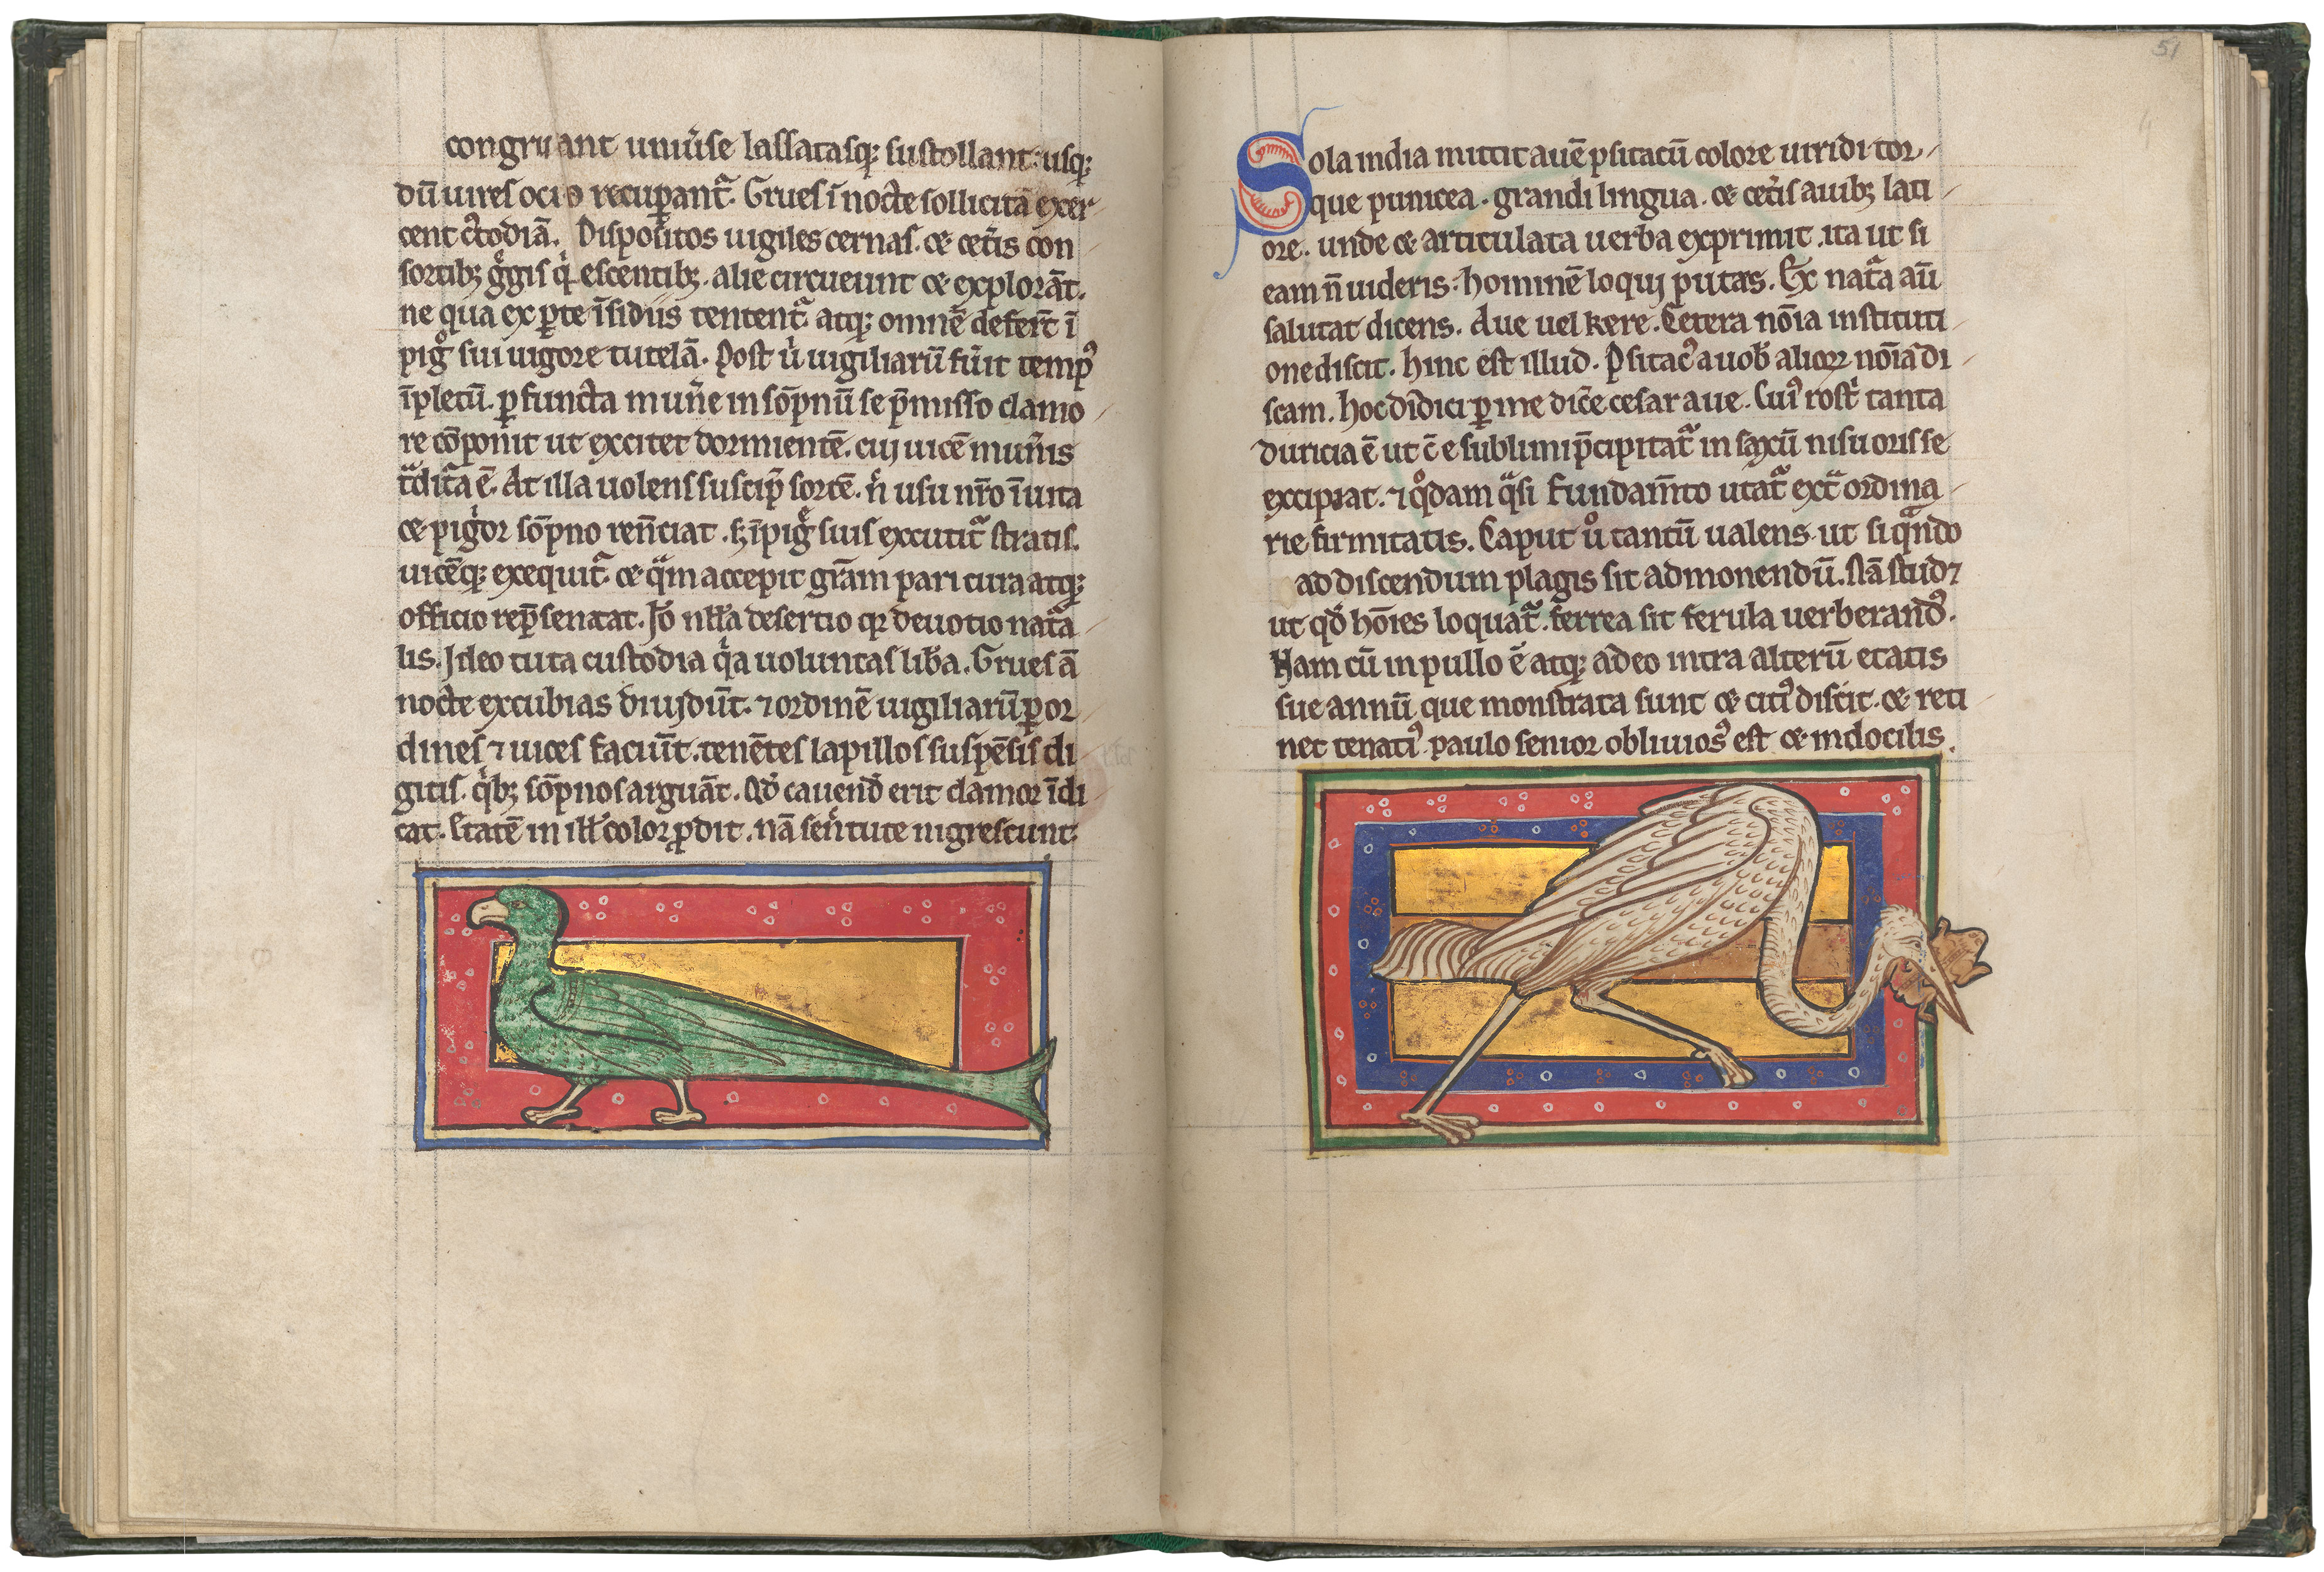 congruant uniu̾se lassatasq; sustollant usq;
dū uires ocio recuꝑant᷑. Grues ī nocte sollicitā exer
cent c̾todiā. Dispositos uigiles cernas. ⁊ cet̾is con
sortib; g̾gis q̾escentib; alie circueunt ⁊ explorāt.
ne qua ex ꝑte īsidiis tentent᷑. atq; omnē defer̄t ī
pig̾ sui uigore tutelā. Post u̾ uigiliarū fu̾it temp᷒
īpletū. ꝑfuncta mun̾e in sōpnū se p̄misso clamo
re cōponit ut excitet dormientē. cuj uicē mun̾is
tᷓditᷓa ē. At illa uolens suscip̄ sortē. n̾ usu nr̄o īuita
⁊ pig̾or sōpno ren̄ciat. s; īpig̾ suis excutit᷑ stratis.
uicēq; exequit᷑. ⁊ qᷓm accepit gr̄am pari cura atq;
officio rep̄sentat. Jō nll̄a desertio qꝛ deuotio natᷓa
lis. Jdeo tuta custodia q̾a uoluntas lib̾a. Grues ā
nocte excubias diujdūt. ⁊ ordinē uigiliarū ꝑ or
dines ⁊ uices faciūt. tenētes lapillos suspēsis di
gitis. q̾b; sōpnos arguāt. Qd̾ cauend̾ erit clamor īdi
cat. Etatē in ill̾ color ꝓdit. nā sen̾tute nigrescunt.
51
Sola india mittit auē psitacū colore uiridi tor
que punicea. grandi lingua. ⁊ cet̾is auib; lati
ore. unde ⁊ articulata uerba exprimit. ita ut si
eam n̄ uideris: hominē loquj putes. Ex natᷓa aū
salutat dicens. Aue uel kere. Cetera nōia instituti
one discit. hinc est illud. Psitac᷒ a uob̾ alioꝝ nōīa di
scam. hoc didici ꝑ me dic̄e cesar aue. Cui᷒ rost̾ tanta
duricia ē ut c̄ e sublimi p̄cipitat᷑ in saxū nisu oris se
excipiat. ⁊ qͦdam qᷓsi fundam̄to utat᷑ extᷓordina
rie firmitatis. Caput uͦ tantū ualens ut si qᷓndo
ad discendum plagis sit admonendū. Nā stud⁊
ut qd̾ hōies loquat᷑. ferrea sit ferula uerberand᷒.
Nam cū in pullo ē atq; adeo intra alterū etatis
sue annū que monstrata sunt ⁊ citi᷒ discit. ⁊ reti
net tenati᷒. paulo senior obliuios᷒ est ⁊ indocilis.